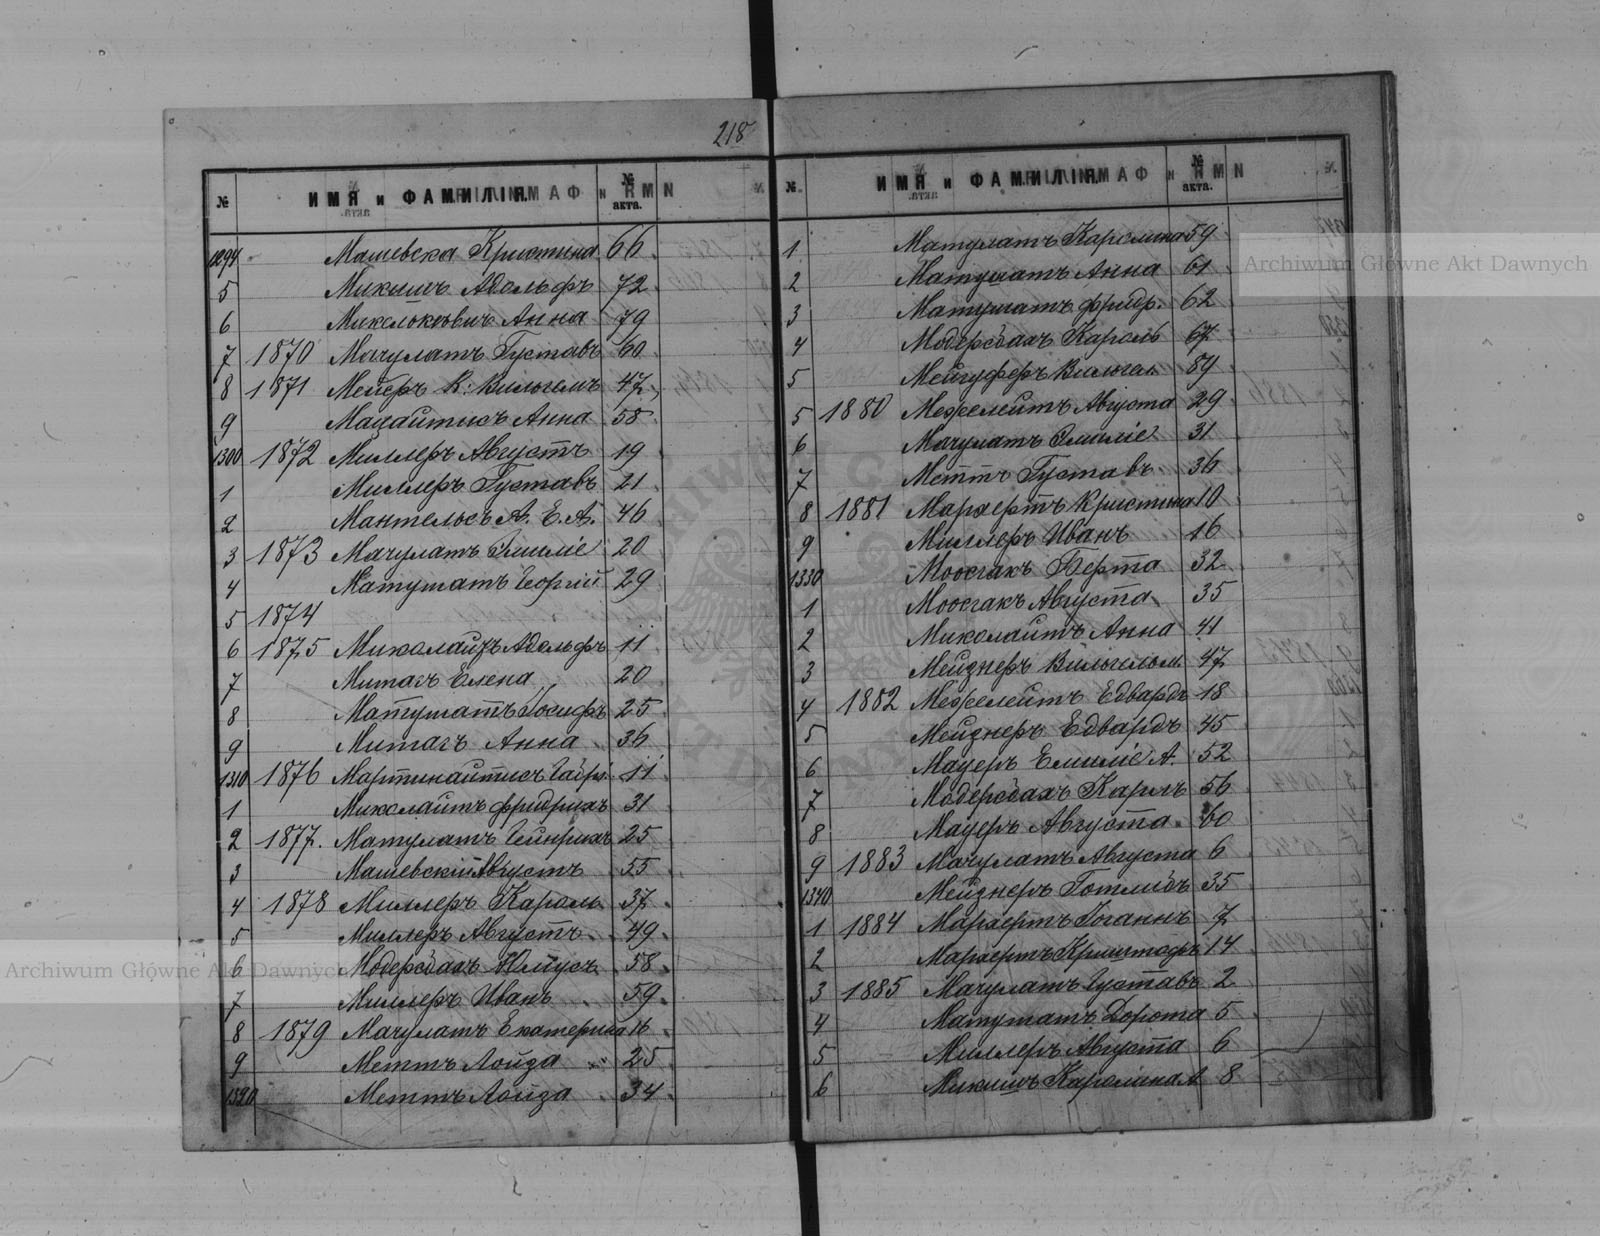 218
№ ИМЯ и ФАМИЛІЯ. № акта.
1294 Машевска Кристина 66
5 Микишъ Адольфъ 72
6 Анна 79
7 1870 Мачулатъ Густавъ 60
8 1871 Мейеръ К: Вильгелмъ 47
9 Мацайтисъ Анна 58
1300 1872 Миллеръ Августъ 19
1 Миллеръ Густавъ 21
2 Мантельсъ А. Е. А. 46
3 1873 Мачулатъ Эмиліе 20
4 Матушатъ Георгій 29
5 1874
6 1875 Миколайцъ Адольфъ 11
7 Митагъ Елена 20
8 Матушатъ Іосифъ 25
9 Митагъ Анна 36
1310 1876 Мартинайтисъ 11
1 Миколайтъ Фридрихъ 31
2 1877. Матулатъ Гейнрихъ 25
3 Машевскій Августъ 55
4 1878 Миллеръ Кароль 37
5 Миллеръ Августъ 49
6 Модерсбахъ Юліусъ 58
7 Миллеръ Иванъ 59
8 1879 Мачулатъ Екатерина 16
9 Меттъ Лоиза 25
1320 Меттъ Лоиза 34
№ ИМЯ и ФАМИЛІЯ. № акта.
1 Матулатъ Каролина 59
2 Матушатъ Анна 61
3 Матушатъ Фридр. 62
4 Модерсбахъ Кароль 67
5 Мейгуферъ Вильгел. 89
5 1880 Межелейтъ Августа 29
6 Мачулатъ Эмиліе 31
7 Меттъ Густавъ 36
8 1881 Маргертъ Кристина 10
9 Миллеръ Иванъ 16
1330 Моосгакъ Берта 32
1 Моосгакъ Августа 35
2 Миколайтъ Анна 41
3 Мейзнеръ Вильгельм. 47
4 1882 Межелейтъ Едвардъ 18
5 Мейзнеръ Едвардъ 45
6 Мауеръ Емиліе А. 52
7 Модерсбахъ Карлъ 56
8 Мауеръ Августа 60
9 1883 Мачулатъ Августа 6
1340 Мейзнеръ Готлибъ 35
1 1884 Маргертъ Іоганнъ 7
2 Маргертъ Криштофъ 14
3 1885 Мачулатъ Густавъ 2
4 Матушатъ Дорота 5
5 Миллеръ Августа 6
6 Микишъ Каролина А. 8
Archiwum Główne Akt Dawnych
Archiwum Główne Akt Dawnych